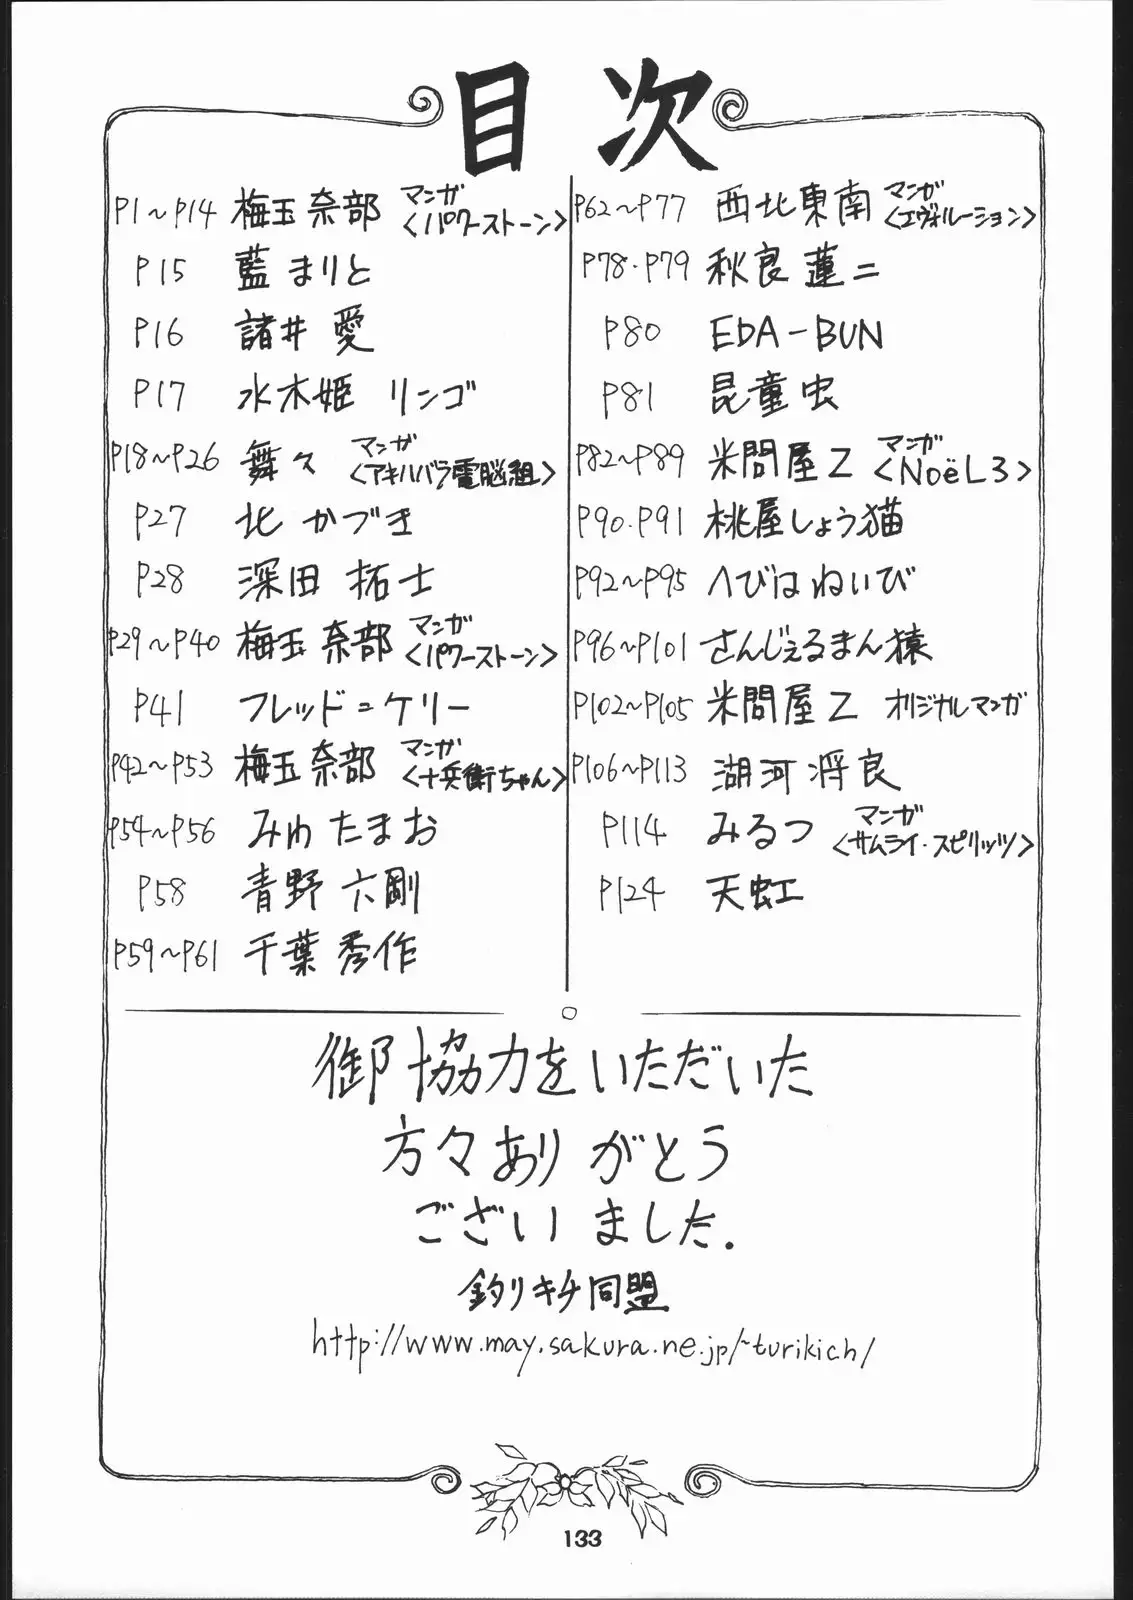 目次
P1～P14 梅玉奈部 マンガ
〈パワーストーン〉
P15 藍まりと
P16 諸井愛
P17 水木姫 リンゴ
P18～P26 舞々 マンガ
〈アキハバラ電脳組〉
P27 北かづき
P28 深田拓士
P29～P40 梅玉奈部 マンガ
〈パワーストーン〉
P41 フレッド=ケリー
P42～P53 梅玉奈部 マンガ
〈十兵衛ちゃん〉
P54～P56 みわたまお
P58 青野六剛
P59～P61 千葉秀作
P62～P77 西北東南 マンガ
〈エヴォルーション〉
P78・P79 秋良蓮二
P80 EDA-BUN
P81 昆童虫
P82～P89 米問屋Z マンガ
〈NoëL3〉
P90・P91 桃屋しょう猫
P92～P95 へびはねいび
P96～P101 さんじぇるまん猿
P102～P105 米問屋Z オリジナルマンガ
P106～P113 湖河将良
P114 みるつ マンガ
〈サムライ・スピリッツ〉
P124 天虹
御協力をいただいた
方々ありがとう
ございました.
釣りキチ同盟
http://www.may.sakura.ne.jp/~turikich/
133